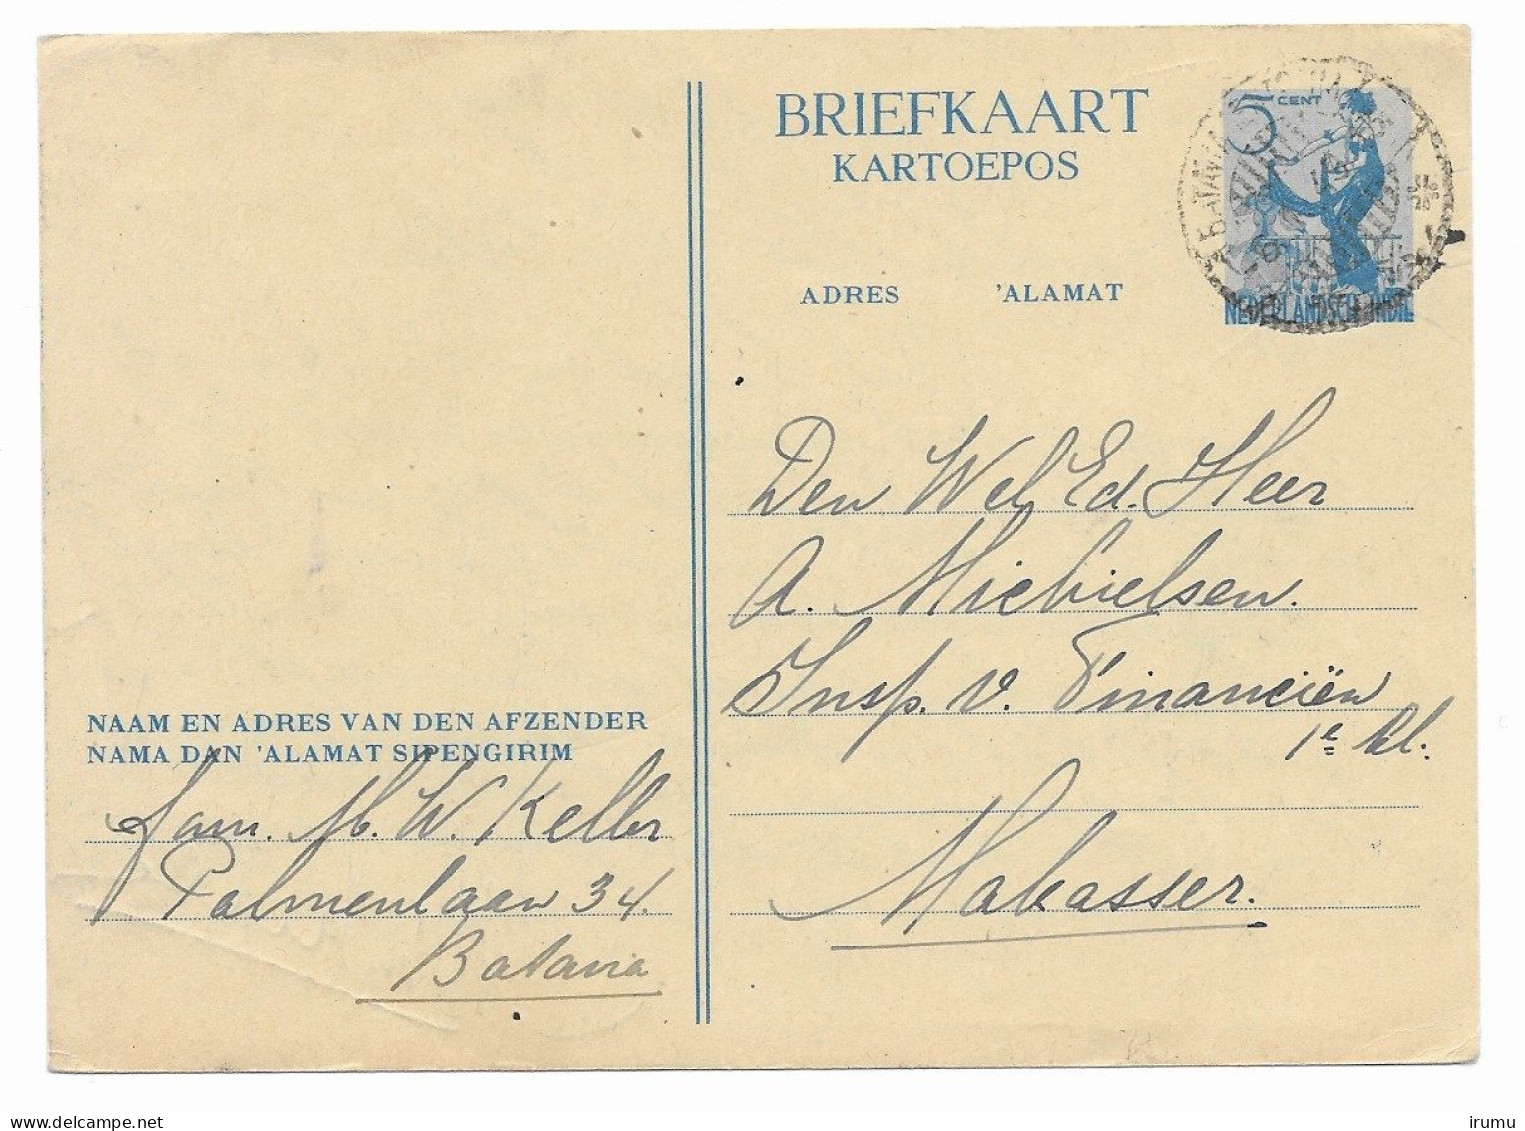 BRIEFKAART
KARTOEPOS
5 CENT
NEDERLANDSCH INDIË
BATAVIA
ADRES 'ALAMAT
Den Wel Ed. Heer
A. Michielsen.
Insp. v. Financiën
1e kl.
Makasser.
NAAM EN ADRES VAN DEN AFZENDER
NAMA DAN 'ALAMAT SIPENGIRIM
Fam. M. W. Keller
Palmenlaan 34.
Batavia
delcampe.net
irumu